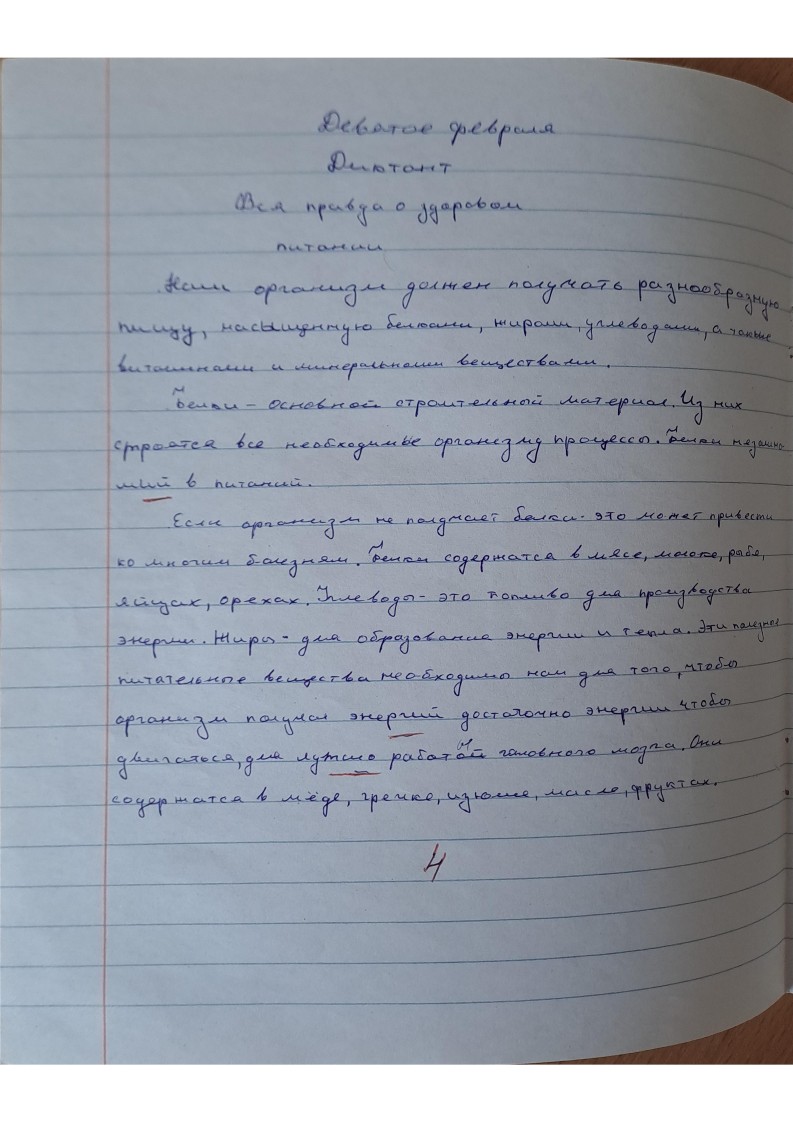 Девятое февраля
Диктант
Вся правда о здоровом
питании
Наш организм должен получать разнообразную
пищу, насыщенную белками, жирами, углеводами, а также
витаминами и минеральными веществами.
Белки - основной строительный материал. Из них
строятся все необходимые организму процессы. Белки
в питаний.
Если организм не получает белка - это может привести
ко многим болезням. Белки содержатся в мясе, молоке, рыбе,
яйцах, орехах. Углеводы - это топливо для производства
энергии. Жиры - для образования энергии и тепла. Эти полезные
питательные вещества необходимы нам для того, чтобы
организм получал энергий достаточно энергии чтобы
двигаться, для головного мозга. Они
содержатся в мёде, гречке, изюме, масле, фруктах.
4